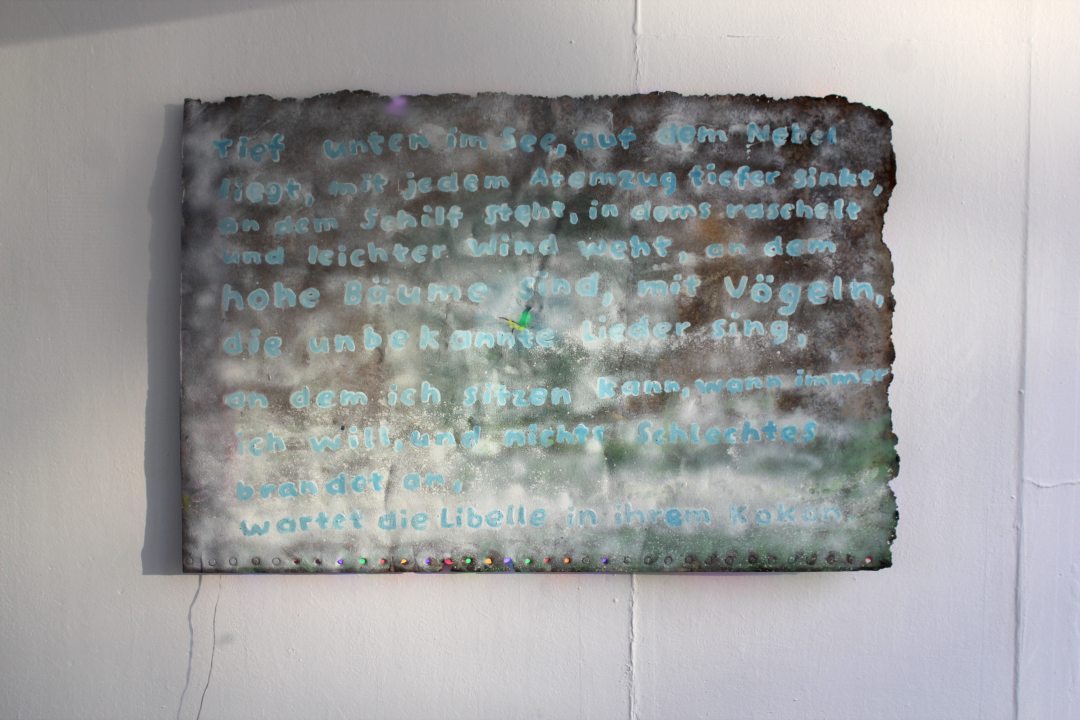 Tief unten im See, auf dem Nebel
liegt, mit jedem Atemzug tiefer sinkt,
an dem Schilf steht, in dems raschelt
und leichter Wind weht, an dem
hohe Bäume sind, mit Vögeln,
die unbekannte Lieder sing,
an dem ich sitzen kann, wann immer
ich will, und nichts Schlechtes
brandet an,
wartet die Libelle in ihrem Kokon